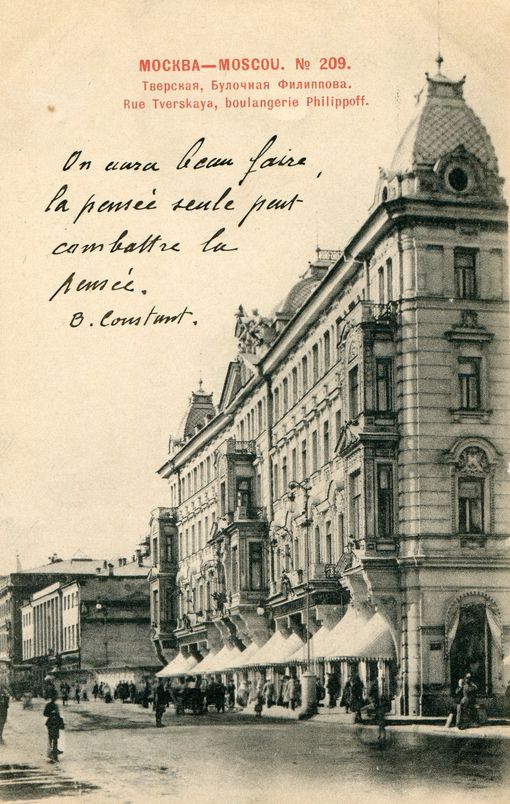 МОСКВА—MOSCOU. № 209.
Тверская, Булочная Филиппова.
Rue Tverskaya, boulangerie Philippoff.
On aura beau faire,
la pensée seule peut
combattre la
pensée.
B. Constant.